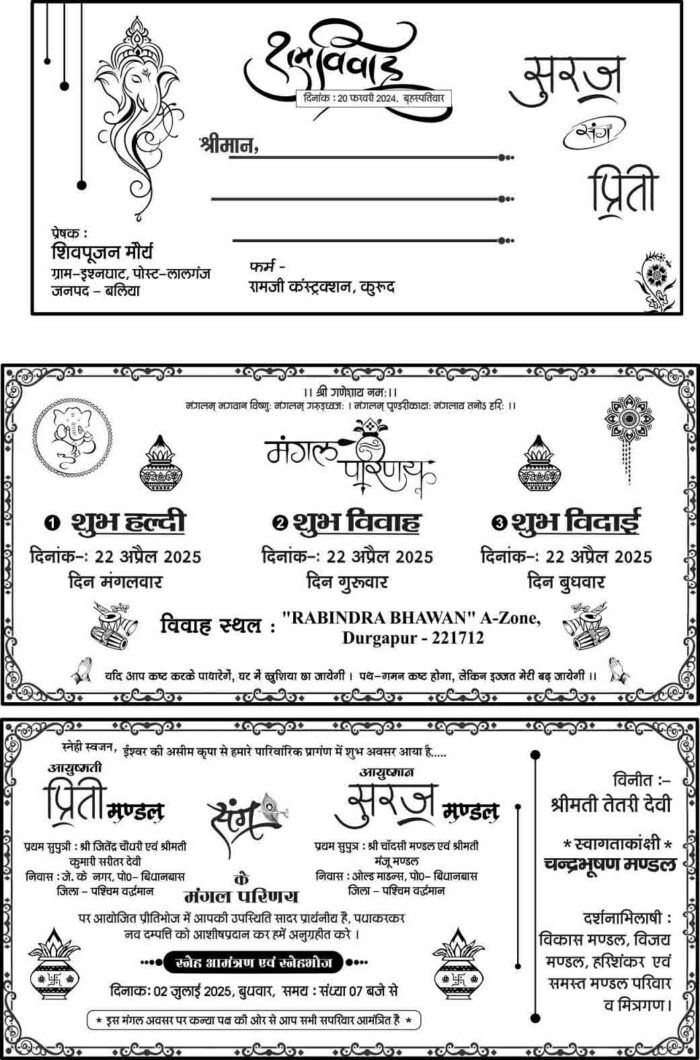 शुभ विवाह
दिनांक : 20 फरवरी 2024, बृहस्पतिवार
सुरज
संग
प्रिती
श्रीमान,
प्रेषक :
शिवपूजन मौर्य
ग्राम-इश्नघाट, पोस्ट-लालगंज
जनपद - बलिया
फर्म -
रामजी कंस्ट्रक्शन, कुरुद
।। श्री गणेशाय नमः।।
मंगलम् भगवान विष्णुः मंगलम् गरुड़ध्वजः । मंगलम् पुण्डरीकाक्षः मंगलाय तनोऽ हरिः ।।
मंगल परिणय
1 शुभ हल्दी
दिनांक-: 22 अप्रैल 2025
दिन मंगलवार
2 शुभ विवाह
दिनांक-: 22 अप्रैल 2025
दिन गुरूवार
3 शुभ विदाई
दिनांक-: 22 अप्रैल 2025
दिन बुधवार
विवाह स्थल : "RABINDRA BHAWAN" A-Zone,
Durgapur - 221712
यदि आप कष्ट करके पाधारेगें, घर में खुशिया छा जायेगी । पथ-गमन कष्ट होगा, लेकिन इज्जत मेरी बढ़ जायेगी ।।
स्नेही स्वजन, ईश्वर की असीम कृपा से हमारे पारिवारिक प्रागंण में शुभ अवसर आया है.....
आयुष्मती
प्रिती मण्डल
प्रथम सुपुत्री : श्री जितेंद्र चौधरी एवं श्रीमती
कुमारी सरीतर देवी
निवास : जे. के नगर, पो०- बिधानबास
जिला - पश्चिम वर्द्धमान
संग
आयुष्मान
सुरज मण्डल
प्रथम सुपुत्र : श्री चाँदसी मण्डल एवं श्रीमती
मंजू मण्डल
निवास : ओल्ड माडन्स, पो०- बिधानबास
जिला - पश्चिम वर्द्धमान
के
मंगल परिणय
पर आयोजित प्रीतिभोज में आपकी उपस्थिति सादर प्रार्थनीय है, पधारकर
नव दम्पत्ती को आशीषप्रदान कर हमें अनुग्रहीत करे ।
स्नेह आमंत्रण एवं स्नेहभोज
दिनाकः 02 जुलाई 2025, बुधवार, समय : संध्या 07 बजे से
* इस मंगल अवसर पर कन्या पक्ष की ओर से आप सभी सपरिवार आमंत्रित है *
विनीत :-
श्रीमती तेतरी देवी
*स्वागताकांक्षी*
चन्द्रभूषण मण्डल
दर्शनाभिलाषी :
विकास मण्डल, विजय
मण्डल, हरिशंकर एवं
समस्त मण्डल परिवार
व मित्रगण।